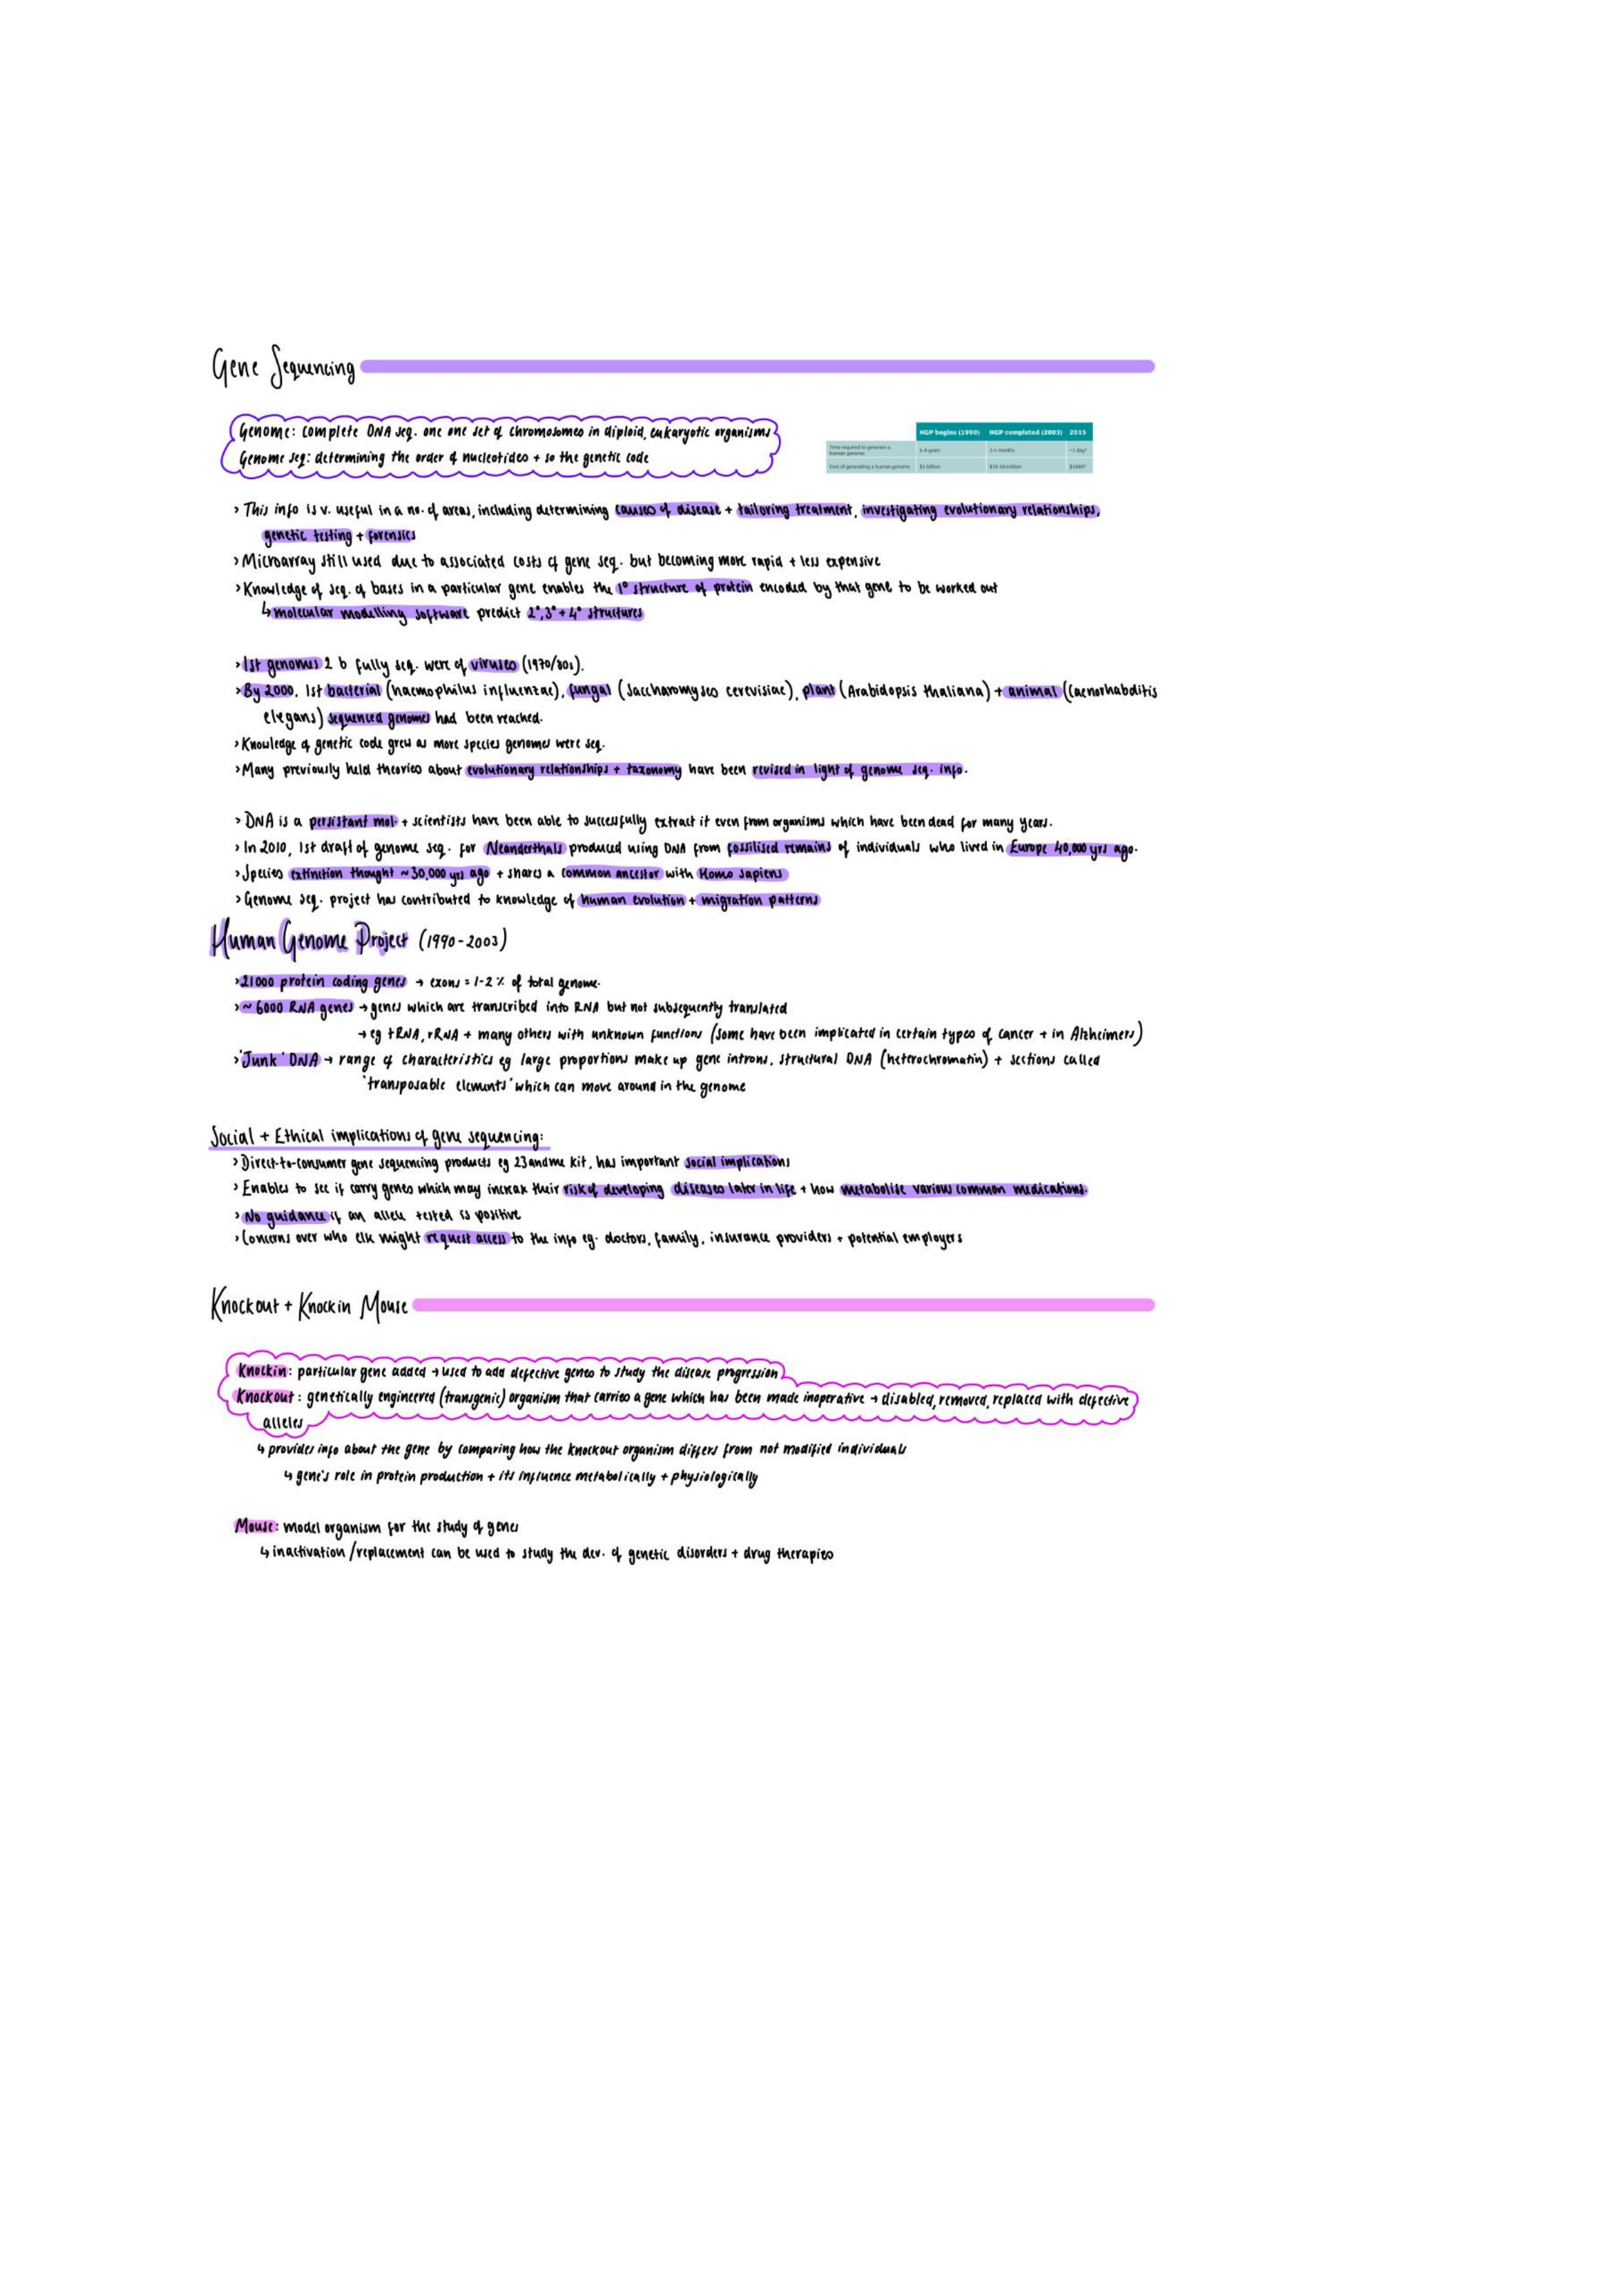 Gene Sequencing
Genome: complete DNA seq. one one set of chromosomes in diploid, eukaryotic organisms
Genome seq: determining the order of nucleotides + so the genetic code
HGP begins (1990) HGP completed (2003) 2015
Time required to generate a human genome 6-8 years 3-4 months <1 day*
Cost of generating a human genome $1 billion $10-50 million $1000*
> This info is v. useful in a no. of areas, including determining causes of disease + tailoring treatment, investigating evolutionary relationships,
genetic testing + forensics
> Microarray still used due to associated costs of gene seq. but becoming more rapid + less expensive
> Knowledge of seq. of bases in a particular gene enables the 1° structure of protein encoded by that gene to be worked out
↳ molecular modelling software predict 2°, 3° + 4° structures
> 1st genomes 2 b fully seq. were of viruses (1970/80s).
> By 2000, 1st bacterial (haemophilus influenzae), fungal (Saccharomyses cerevisiae), plant (Arabidopsis thaliana) + animal (Caenorhabditis
elegans) sequenced genomes had been reached.
> Knowledge of genetic code grew as more species genomes were seq.
> Many previously held theories about evolutionary relationships + taxonomy have been revised in light of genome seq. info.
> DNA is a persistant mol. + scientists have been able to successfully extract it even from organisms which have been dead for many years.
> In 2010, 1st draft of genome seq. for Neanderthals produced using DNA from fossilised remains of individuals who lived in Europe 40,000 yrs ago.
> Species extinction thought ~30,000 yrs ago + shares a common ancestor with Homo sapiens
> Genome seq. project has contributed to knowledge of human evolution + migration patterns
Human Genome Project (1990-2003)
> 21000 protein coding genes → exons = 1-2% of total genome.
> ~ 6000 RNA genes → genes which are transcribed into RNA but not subsequently translated
→ eg tRNA, rRNA + many others with unknown functions (some have been implicated in certain types of cancer + in Alzheimers)
> 'Junk' DNA → range of characteristics eg large proportions make up gene introns, structural DNA (heterochromatin) + sections called
'transposable elements' which can move around in the genome
Social + Ethical implications of gene sequencing:
> Direct-to-consumer gene sequencing products eg 23andme kit, has important social implications
> Enables to see if carry genes which may increase their risk of developing diseases later in life + how metabolise various common medications.
> No guidance if an allele tested is positive
> Concerns over who else might request access to the info eg. doctors, family, insurance providers + potential employers
Knockout + Knockin Mouse
Knockin: particular gene added → used to add defective genes to study the disease progression
Knockout: genetically engineered (transgenic) organism that carries a gene which has been made inoperative → disabled, removed, replaced with defective
alleles
↳ provides info about the gene by comparing how the knockout organism differs from not modified individuals
↳ gene's role in protein production + its influence metabolically + physiologically
Mouse: model organism for the study of genes
↳ inactivation/replacement can be used to study the dev. of genetic disorders + drug therapies